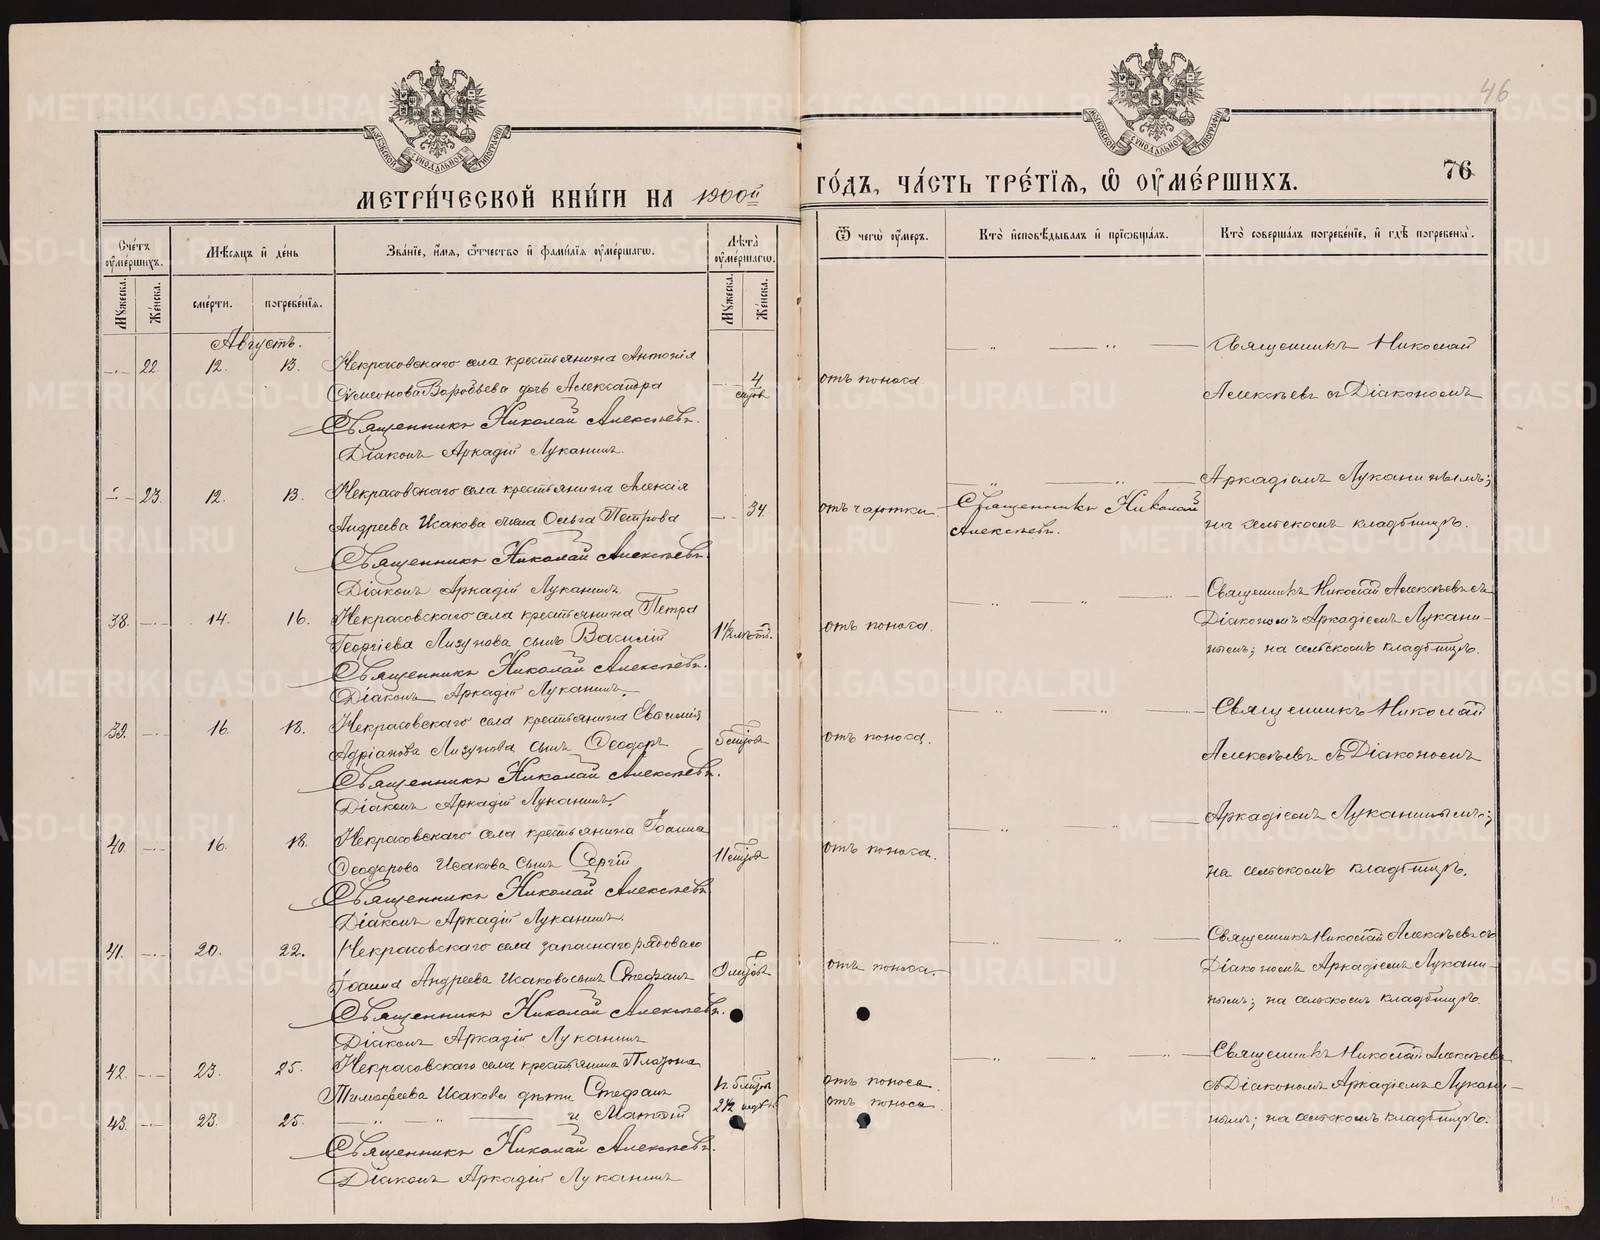 46
76
МЕТРИЧЕСКОЙ КНИГИ НА 1900й
ГОДЪ, ЧАСТЬ ТРЕТІЯ, Ѿ ОУМЕРШИХЪ.
Счетъ оумершихъ.
Мѣсяцъ и день
Званіе, имя, отчество и фамилія оумершагѡ.
Лѣта оумершагѡ.
Ѿ чегѡ оумеръ.
Кто исповѣдывалъ и пріобщалъ.
Кто совершалъ погребеніе, и гдѣ погребены.
Мужеска.
Женска.
смерти.
погребенія.
Мужеска.
Женска.
Августъ.
22 12. 13. Некрасовскаго села крестьянина Антонія
Сѵмеонова Воробьева дочь Александра
4 отъ поноса
Священникъ Николай
Алексѣевъ съ Діакономъ
Священникъ Николай Алексѣевъ.
Діаконъ Аркадій Луканинъ.
Аркадіемъ Луканинымъ;
23. 12. 13. Некрасовскаго села крестьянина Алексія
Андреева Исакова жена Ольга Петрова
34. отъ чахотки
Священникъ Николай
Алексѣевъ.
на сельскомъ кладбищѣ.
Священникъ Николай Алексѣевъ.
Діаконъ Аркадій Луканинъ
38. 14. 16. Некрасовскаго села крестьянина Петра
Георгіева Лизунова сынъ Василій
1½ отъ поноса.
Священникъ Николай Алексѣевъ съ
Діакономъ Аркадіемъ Лукани-
нымъ; на сельскомъ кладбищѣ.
Священникъ Николай Алексѣевъ.
Діаконъ Аркадій Луканинъ.
39. 16. 18. Некрасовскаго села крестьянина Евѳимія
Адріанова Лизунова сынъ Ѳеодоръ
5 отъ поноса.
Священникъ Николай
Алексѣевъ съ Діакономъ
Священникъ Николай Алексѣевъ.
Діаконъ Аркадій Луканинъ.
Аркадіемъ Луканинымъ;
40. 16. 18. Некрасовскаго села крестьянина Іоанна
Ѳеодорова Исакова сынъ Сергій
11 отъ поноса.
на сельскомъ кладбищѣ.
Священникъ Николай Алексѣевъ
Діаконъ Аркадій Луканинъ.
41. 20. 22. Некрасовскаго села запаснаго рядоваго
Іоанна Андреева Исакова сынъ Стефанъ
отъ поноса.
Священникъ Николай Алексѣевъ съ
Діакономъ Аркадіемъ Лукани-
нымъ; на сельскомъ кладбищѣ.
Священникъ Николай Алексѣевъ.
Діаконъ Аркадій Луканинъ
42. 23. 25. Некрасовскаго села крестьянина Платона
Тимоѳеева Исакова дѣти Стефанъ
отъ поноса.
Священникъ Николай Алексѣевъ
съ Діакономъ Аркадіемъ Лукани-
нымъ; на сельскомъ кладбищѣ.
43. 23. 25. и Матѳій
2½ отъ поноса
Священникъ Николай Алексѣевъ.
Діаконъ Аркадій Луканинъ
METRIKI.GASO-URAL.RU